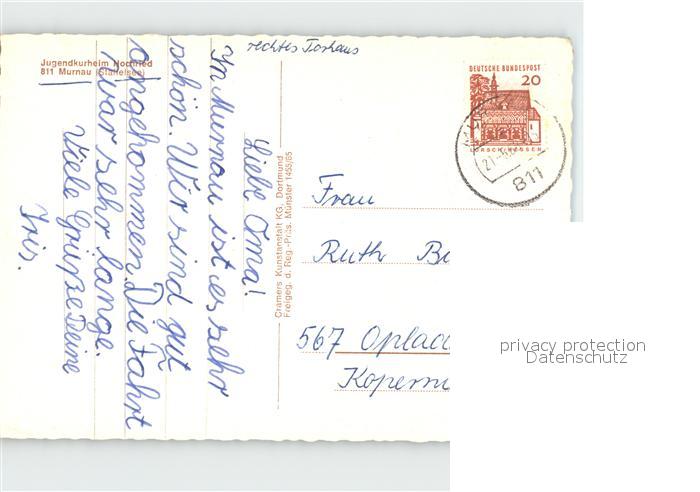 Jugendkurheim Hochried
811 Murnau (Staffelsee)
rechtes Torhaus
Liebe Oma!
In Murnau ist es sehr
schön. Wir sind gut
angekommen. Die Fahrt
war sehr lange.
Viele Grüße Deine
Iris.
Cramers Kunstanstalt KG, Dortmund
Freigeg. d. Reg.-Präs. Münster 1455/65
DEUTSCHE BUNDESPOST
20
LORSCH/HESSEN
811
Frau
Ruth
567
privacy protection
Datenschutz